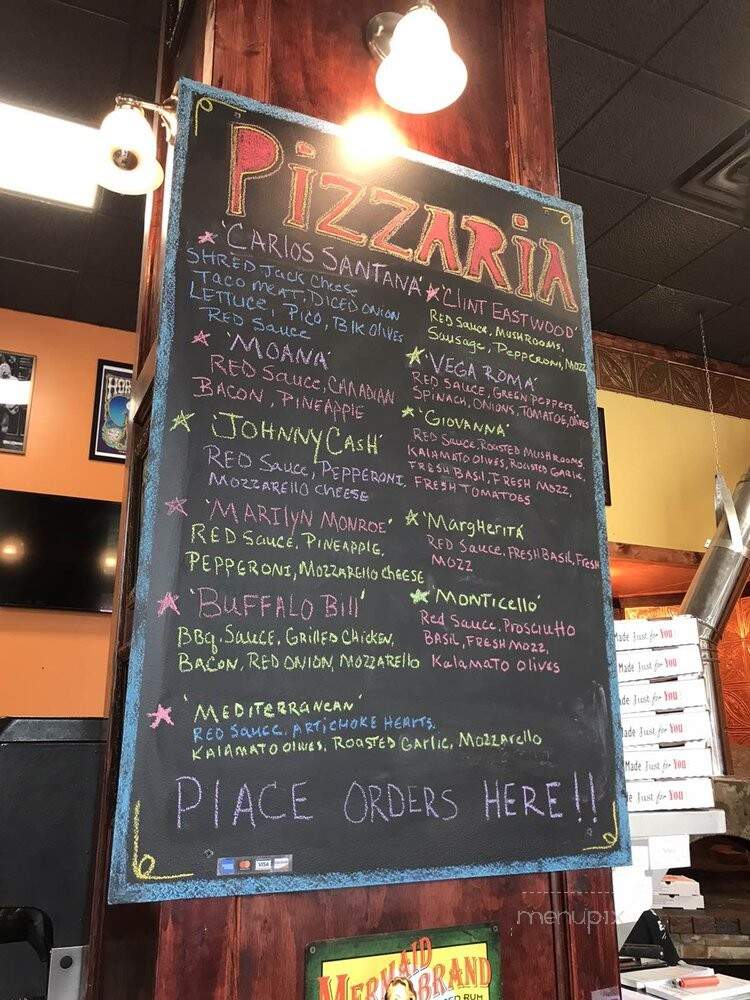 PizzARiA
'CARLOS SANTANA'
SHRED Jack Cheese
Taco meat, DICED ONION
LETTUCE, PICO, Blk Olives
RED Sauce
'MOANA'
RED Sauce, CANADIAN
BACON, PINEAPPLE
'JOHNNY CASH'
RED Sauce, PEPPERONI,
MOZZARELLO CHEESE
'MARILYN MONROE'
RED Sauce, PINEAPPLE,
PEPPERONI, MOZZARELLO CHEESE
'BUFFALO Bill'
BBQ. SAUCE, GRILLED CHICKEN,
BACON, RED ONION, MOZZARELLO
'CLINT EASTWOOD'
RED SAUCE, MUSHROOMS,
SAUSAGE, PEPPERONI, MOZZ
'VEGA ROMA'
RED SAUCE, GREEN PEPPERS,
SPINACH, ONIONS, TOMATOE, OLIVES
'GIOVANNA'
RED SAUCE, ROASTED MUSHROOMS,
KALAMATO OLIVES, ROASTED GARLIC,
FRESH BASIL, FRESH MOZZ,
FRESH TOMATOES
'MARGHERITA'
RED SAUCE, FRESH BASIL, FRESH
MOZZ
'MONTICELLO'
Red Sauce, Prosciutto
BASIL, FRESH MOZZ,
Kalamato Olives
'MEDITERRANEAN'
RED SAUCE, ARTICHOKE HEARTS,
KALAMATO OLIVES, ROASTED GARLIC, MOZZARELLO
PLACE ORDERS HERE!!
VISA
HOP
Made Just for YOU
Made Just for YOU
Made Just for YOU
Made Just for YOU
Made Just for YOU
Just for YOU
menupix
MERMAID
BRAND
RED RUM